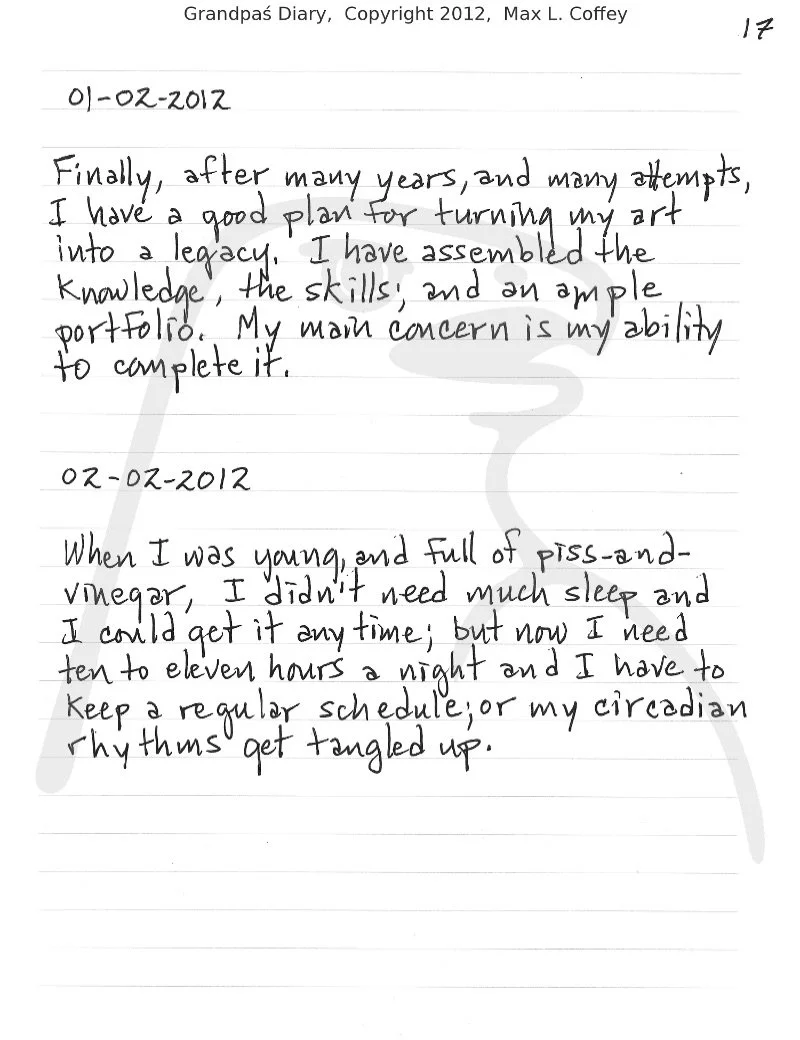 Grandpaś Diary, Copyright 2012, Max L. Coffey
17
01-02-2012
Finally, after many years, and many attempts,
I have a good plan for turning my art
into a legacy. I have assembled the
knowledge, the skills; and an ample
portfolio. My main concern is my ability
to complete it.
02-02-2012
When I was young, and full of piss-and-
vinegar, I didn't need much sleep and
I could get it any time; but now I need
ten to eleven hours a night and I have to
keep a regular schedule; or my circadian
rhythms get tangled up.